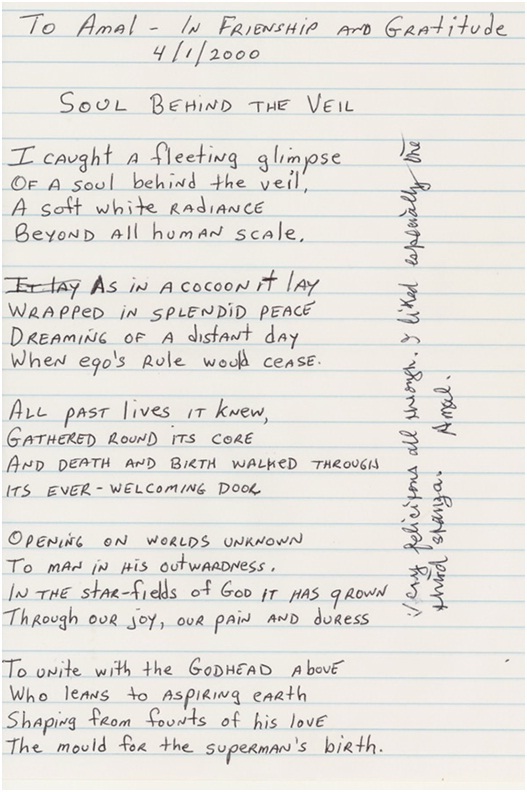 To Amal - In Frienship and Gratitude
4/1/2000
Soul Behind the Veil
I caught a fleeting glimpse
Of a soul behind the veil,
A soft white radiance
Beyond all human scale.
It lay As in a cocoon it lay
Wrapped in splendid peace
Dreaming of a distant day
When ego's rule would cease.
All past lives it knew,
Gathered round its core
And death and birth walked through
Its ever-welcoming door
Opening on worlds unknown
To man in his outwardness.
In the star-fields of God it has grown
Through our joy, our pain and duress
To unite with the Godhead above
Who leans to aspiring earth
Shaping from founts of his love
The mould for the superman's birth.
Very felicitous all through. I liked especially the
third stanza. Amal.